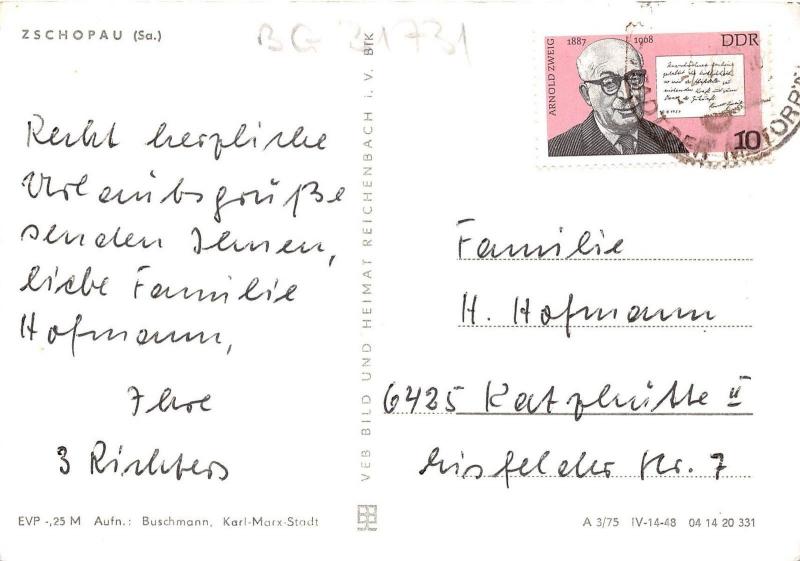 ZSCHOPAU (Sa.)
BG 31731
Recht herzliche
Urlaubsgrüße
senden Ihnen,
liebe Familie
Hofmann,
Ihre
3 Richters
EVP -,25 M Aufn.: Buschmann, Karl-Marx-Stadt
VEB BILD UND HEIMAT REICHENBACH i. V. BfK
ARNOLD ZWEIG
1887 1968 DDR
10
Familie
H. Hofmann
6425 Katzhütte II
Eisfelder Str. 7
A 3/75 IV-14-48 04 14 20 331